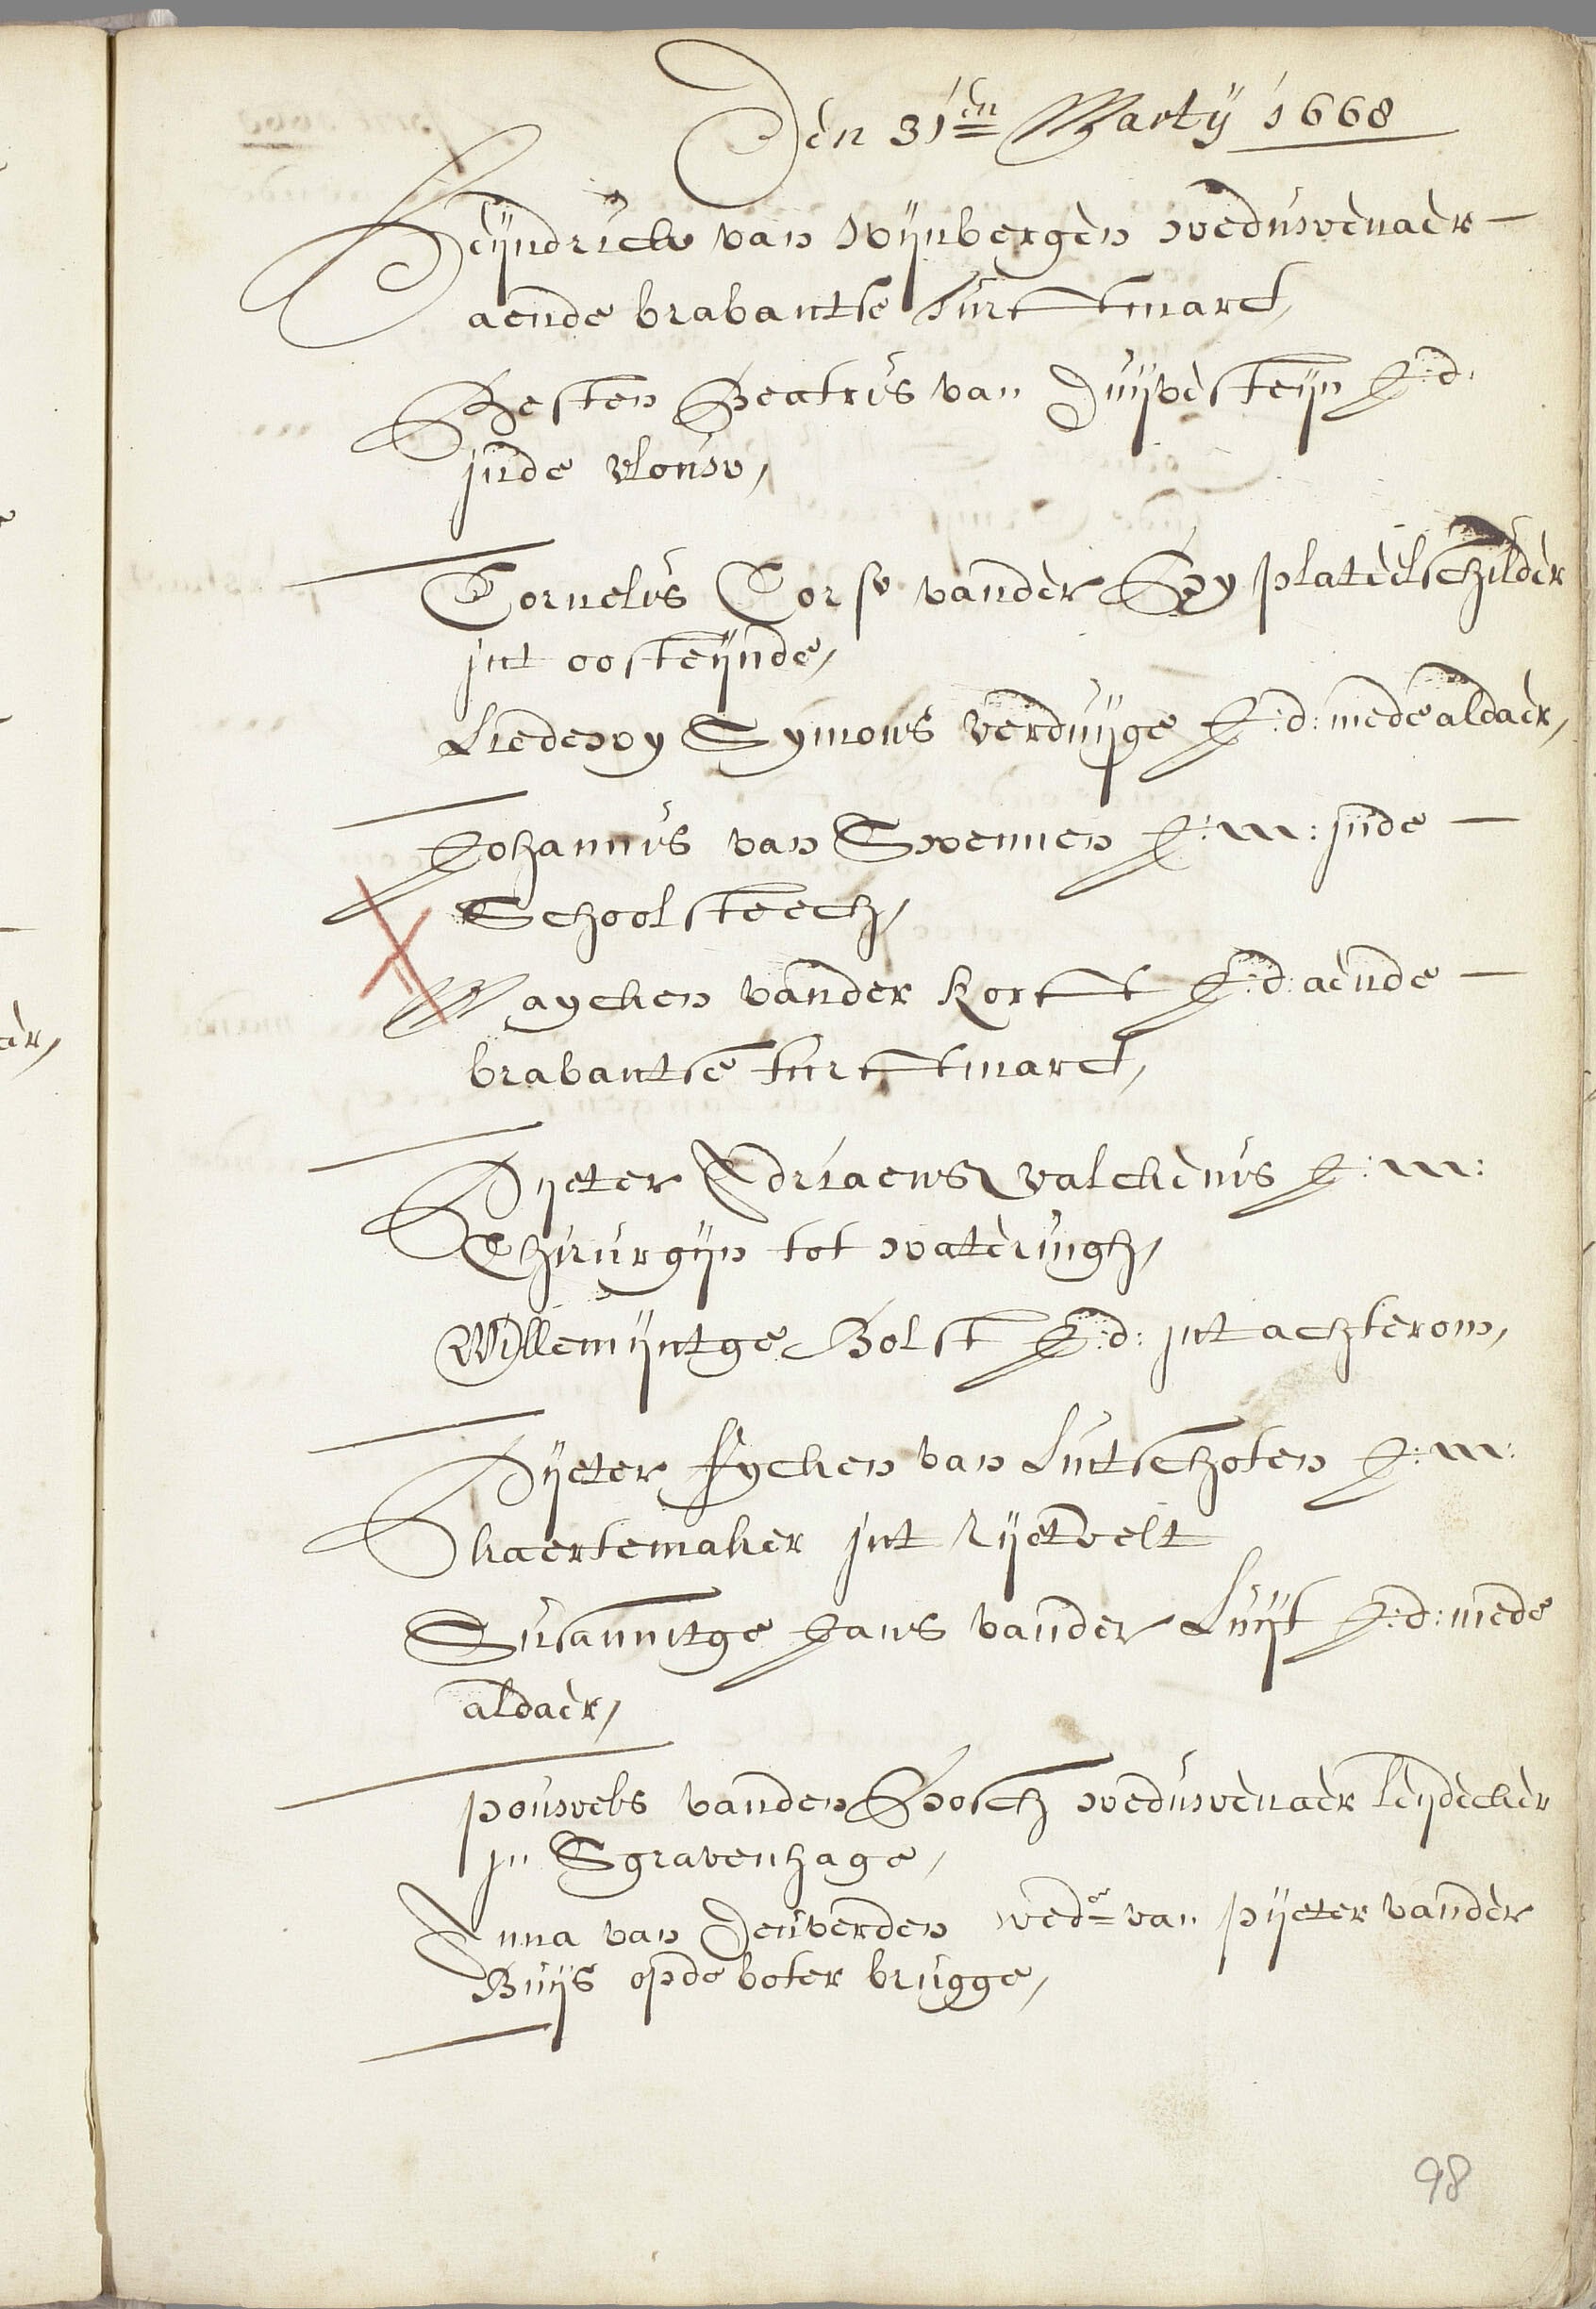 Den 31en Marty 1668
Heyndrick van Wynbergen weduwenaer
aende brabantse Turftmarct,
Hesten Beatris van Duyvesteyn J:d:
inde vlouw,
Cornelis Corse vander Hoy plateelschilder
int oosteynde,
Liedewy Symons verduyge J:d: mede aldaer,
Johannis van Swennen J:m: inde
Schoolsteech,
Mayken vander Kortt J:d: aende
brabantse turftmarct,
Pyeter Adriaens valckenis J:m:
Chirurgyn tot wateringh,
Willemyntge Bolst J:d: int achterom,
Pyeter fycken van Lutschoten J:m:
kaertemaker int Ryetvelt
Susanntge Jans vander Luyt J:d: mede
aldaer,
pouwels vanden Bosch weduwenaer leydecker
in Sgravenhage,
Anna van Deuverden wede van pyeter vander
Buys opde boter brugge,
98